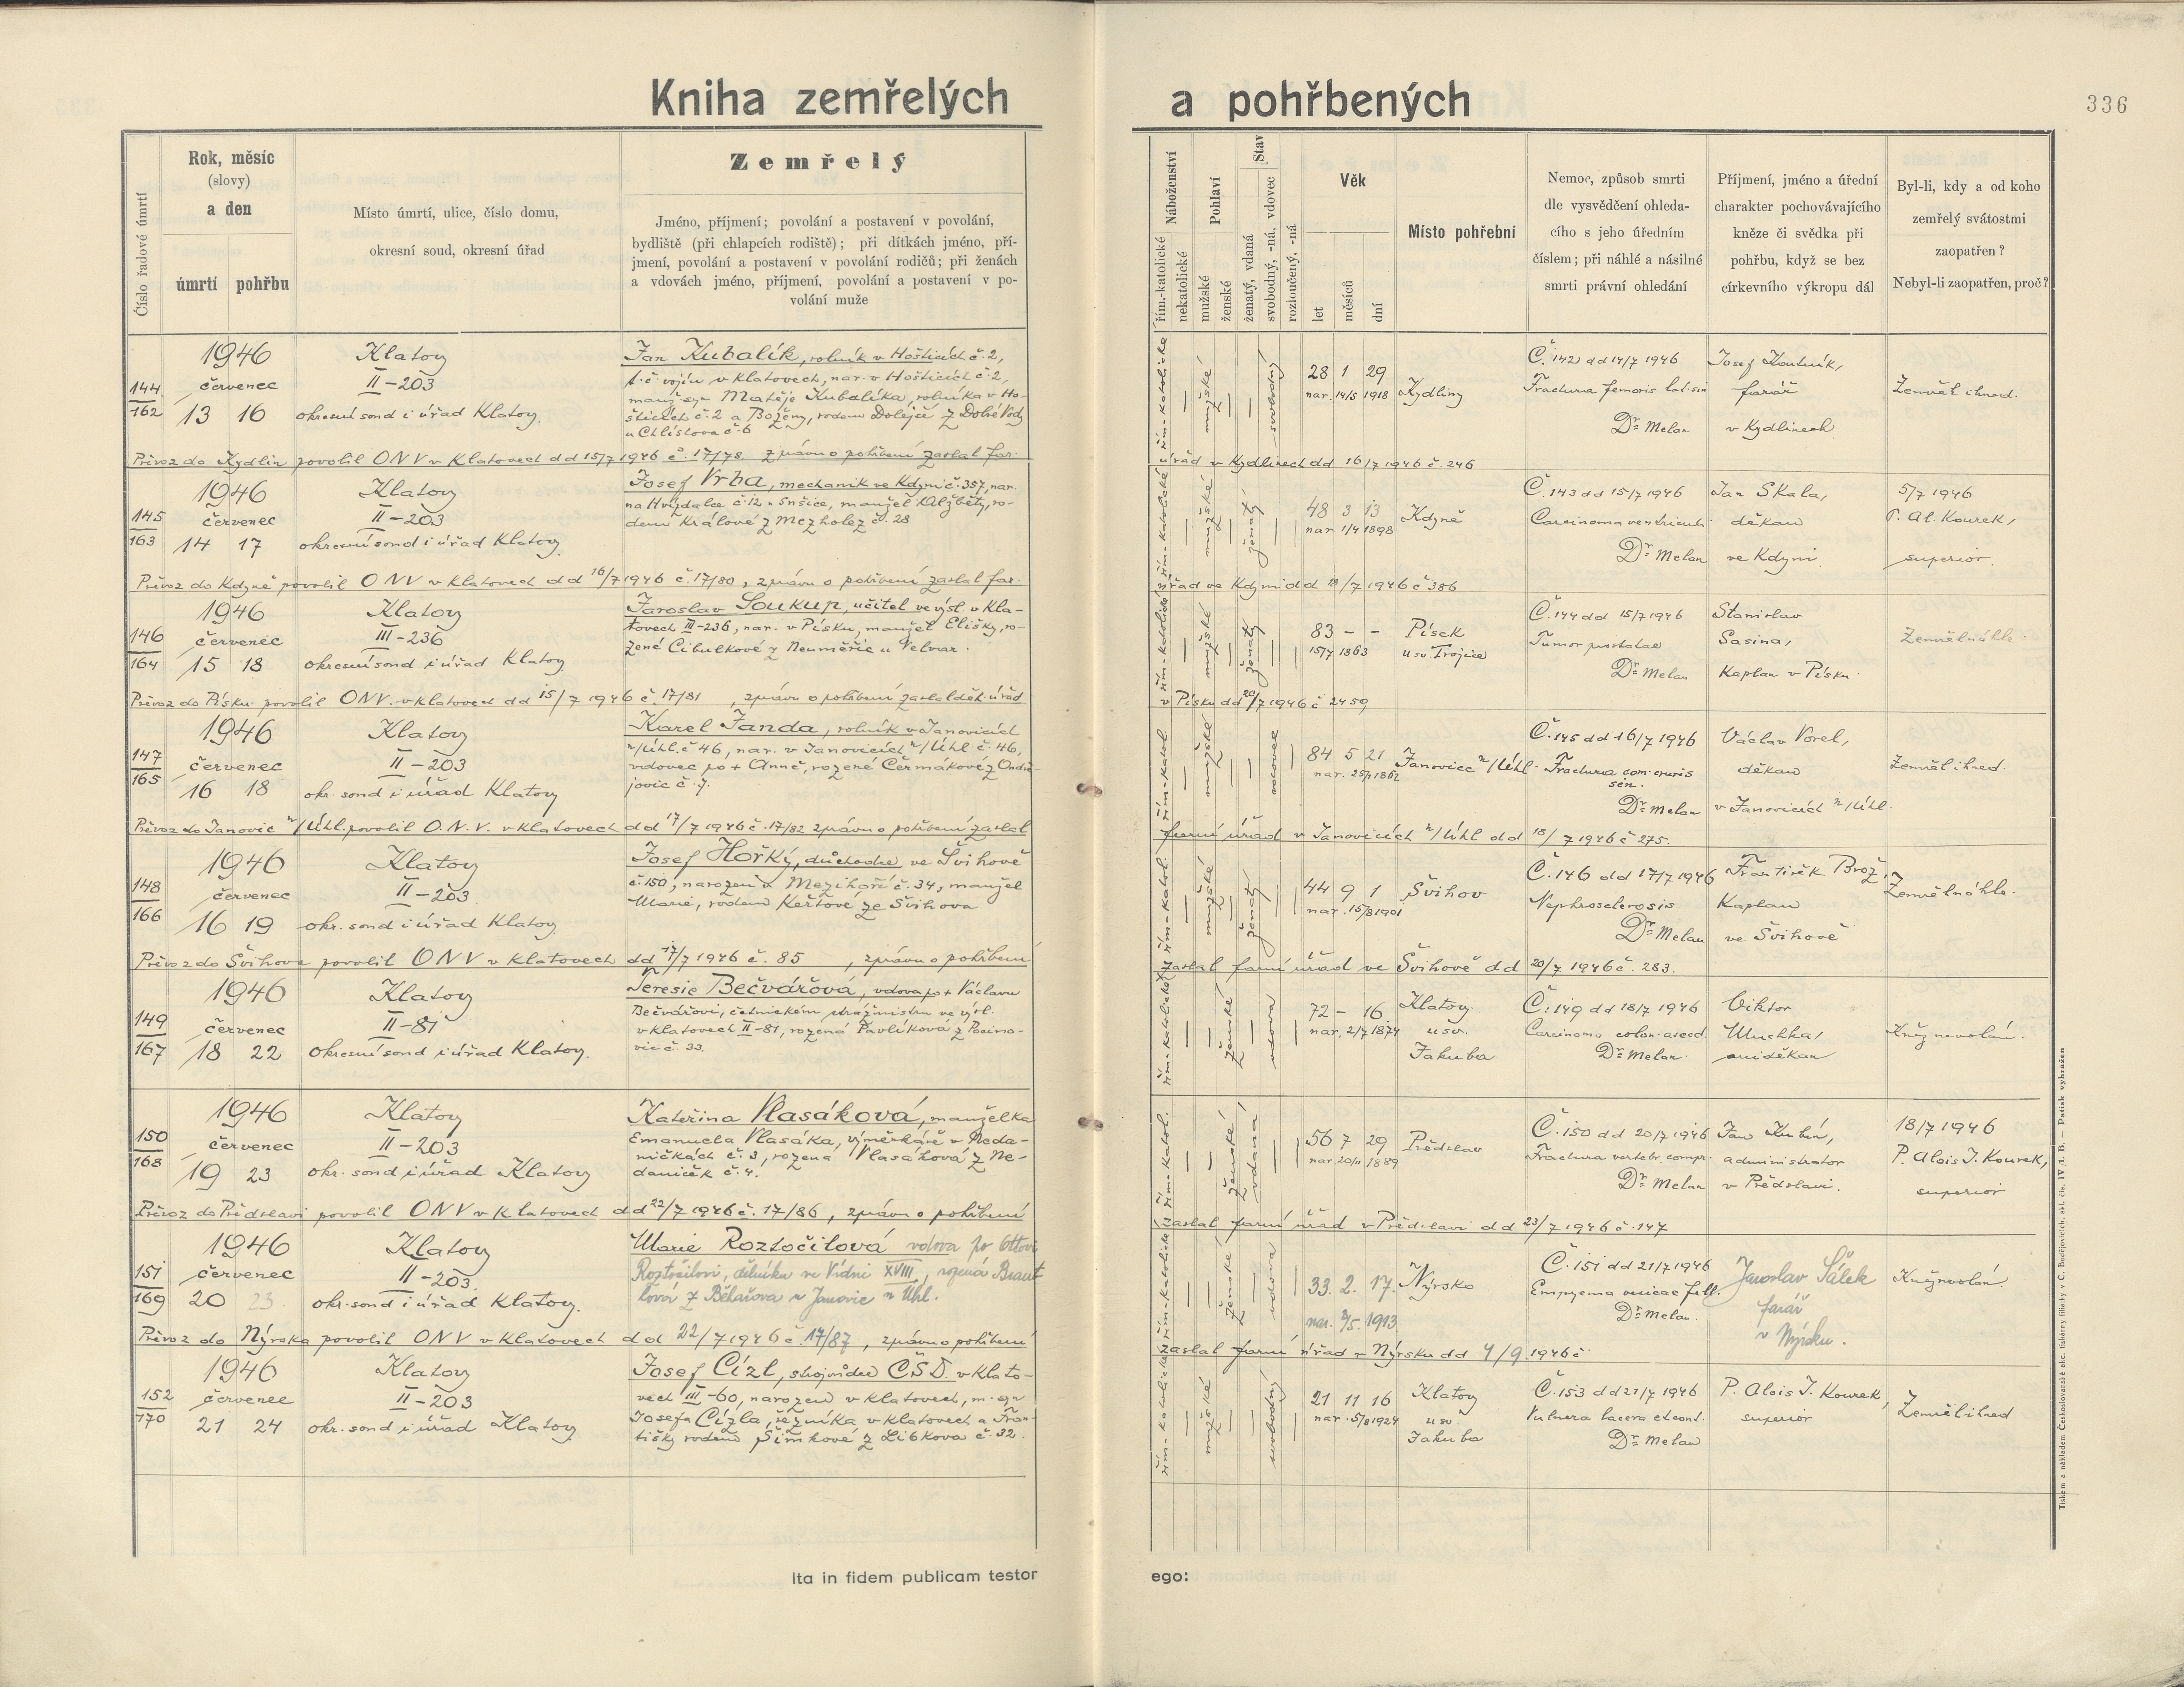 Kniha zemřelých a pohřbených
336
Číslo řadové úmrtí
Rok, měsíc
(slovy)
a den
úmrtí pohřbu
Místo úmrtí, ulice, číslo domu,
okresní soud, okresní úřad
Zemřelý
Jméno, příjmení; povolání a postavení v povolání,
bydliště (při chlapcích rodiště); při dítkách jméno, pří-
jmení, povolání a postavení v povolání rodičů; při ženách
a vdovách jméno, příjmení, povolání a postavení v po-
volání muže
Náboženství
řím.-katolické
nekatolické
Pohlaví
mužské
ženské
Stav
ženatý, vdaná
svobodný, -ná, vdovec
rozloučený, -ná
Věk
let
měsíců
dní
Místo pohřební
Nemoc, způsob smrti
dle vysvědčení ohleda-
cího s jeho úředním
číslem; při náhlé a násilné
smrti právní ohledání
Příjmení, jméno a úřední
charakter pochovávajícího
kněze či svědka při
pohřbu, když se bez
církevního výkropu dál
Byl-li, kdy a od koho
zemřelý svátostmi
zaopatřen?
Nebyl-li zaopatřen, proč?
144
162
1946
červenec
13 16
Klatovy
II-203
okresní soud i úřad Klatovy.
Jan Kubalík, rolník v Hošticích č. 2,
t. č. vojín v Klatovech, nar. v Hošticích č. 2,
manž. syn Matěje Kubalíka, rolníka v Ho-
šticích č. 2 a Boženy, rodem Dolejší z Dobré Vody
u Chlistova č. 6
řím.-katolické
mužské
svobodný
28 1 29
nar. 14/5 1918
Kydliny
Č. 142 dd 14/7 1946
Fractura femoris lat. sin
Dr. Melan
Josef Koutník,
farář
v Kydlinech
Zemřel ihned.
Převoz do Kydlin povolil ONV v Klatovech dd 15/7 1946 č. 17/78. Zprávu o pohřbení zaslal far.
úřad v Kydlinech dd 16/7 1946 č. 246
145
163
1946
červenec
14 17
Klatovy
II-203
okresní soud i úřad Klatovy.
Josef Vrba, mechanik ve Kdyni č. 357, nar.
na Hvízdalce č. 12, manžel Alžběty, ro-
dem Králové z Mezholez č. 28
řím.-katolické
mužské
ženatý
48 3 13
nar 1/4 1898
Kdyně
Č. 143 dd 15/7 1946
Carcinoma ventriculi
Dr. Melan
Jan Skala,
děkan
ve Kdyni.
5/7 1946
P. Al. Kourek,
superior.
Převoz do Kdyně povolil ONV v Klatovech dd 16/7 1946 č. 17/80, zprávu o pohřbení zaslal far.
úřad ve Kdyni dd 18/7 1946 č 386
146
164
1946
červenec
15 18
Klatovy
III-236
okresní soud i úřad Klatovy
Jaroslav Soukup, učitel ve výsl. v Kla-
tovech III-236, nar. v Písku, manžel Elišky, ro-
zené Cibulkové z Neuměřic u Velvar.
řím.-katolické
mužské
ženatý
83 - -
15/7 1863
Písek
u sv. Trojice
Č. 144 dd 15/7 1946
Tumor prostatae
Dr. Melan
Stanislav
Sasina,
Kaplan v Písku.
Zemřel náhle.
Převoz do Písku povolil ONV. v Klatovech dd 15/7 1946 č. 17/81, zprávu o pohřbení zaslal děk. úřad
v Písku dd 20/7 1946 č 2459
147
165
1946
červenec
16 18
Klatovy
II-203
okr. soud i úřad Klatovy
Karel Janda, rolník v Janovicích
n/Úhl. č 46, nar. v Janovicích n/Úhl č. 46,
vdovec po + Anně, rozené Čermákové z Ondře-
jovic č. 7.
řím.-katol.
mužské
vdovec
84 5 21
nar. 25/1 1862
Janovice n/Úhl.
Č. 145 dd 16/7 1946
Fractura com. cruris
sin.
Dr. Melan
Václav Vorel,
děkan
v Janovicích n/Úhl.
Zemřel ihned.
Převoz do Janovic n/Úhl. povolil O.N.V. v Klatovech dd 17/7 1946 č. 17/82 zprávu o pohřbení zaslal
farní úřad v Janovicích n/Úhl dd 18/7 1946 č 275.
148
166
1946
červenec
16 19
Klatovy
II-203.
okr. soud i úřad Klatovy
Josef Hořký, důchodce ve Švihově
č. 150, narozen v Mezihoří č. 34, manžel
Marie, rodem Keřtové ze Švihova
řím.-katol.
mužské
ženatý
44 9 1
nar. 15/8 1901
Švihov
Č. 146 dd 17/7 1946
Nephrosclerosis
Dr. Melan
František Brož,
Kaplan
ve Švihově
Zemřel náhle.
Převoz do Švihova povolil ONV v Klatovech dd 17/7 1946 č. 85, zprávu o pohřbení
zaslal farní úřad ve Švihově dd 20/7 1946 č. 283.
149
167
1946
červenec
18 22
Klatovy
II-81
okresní soud i úřad Klatovy.
Teresie Bečvářová, vdova po + Václavu
Bečvářovi, četnickém strážmistru ve výsl.
v Klatovech II-81, rozená Pavlíková z Pocino-
vic č. 33.
řím.-katolické
ženské
vdova
72 - 16
nar. 2/7 1874
Klatovy
u sv.
Jakuba
Č. 149 dd 18/7 1946
Carcinoma colon. ascend.
Dr. Melan.
Viktor
Muchka,
arciděkan
Kněz nevolán.
150
168
1946
červenec
19 23
Klatovy
II-203
okr. soud i úřad Klatovy
Kateřina Vlasáková, manželka
Emanuela Vlasáka, výměnkáře v Neda-
ničkách č. 3, rozená Vlasáková z Ne-
daniček č. 4.
řím.-katol.
ženské
vdaná
56 7 29
nar. 20/11 1889
Předslav
Č. 150 dd 20/7 1946
Fractura vertebr. compr.
Dr. Melan
Jan Kubín,
administrator
v Předslavi.
18/7 1946
P. Alois J. Kourek,
superior
Převoz do Předslavi povolil ONV v Klatovech dd 22/7 1946 č. 17/86, zprávu o pohřbení
zaslal farní úřad v Předslavi dd 23/7 1946 č. 147
151
169
1946
červenec
20 23.
Klatovy
II-203.
okr. soud i úřad Klatovy.
Marie Roztočilová vdova po Ottovi
Roztočilovi, dělníka ve Vídni XVIII, rozená Braut
lová z Běhařova u Janovic n Úhl.
řím.-katolické
ženské
vdova
33. 2. 17.
nar. 3/5 1913
Nýrsko
Č. 151 dd 21/7 1946
Empyema vesicae fell.
Dr. Melan.
Jaroslav Šálek
farář
v Nýrsku.
Kněz nevolán.
Převoz do Nýrska povolil ONV v Klatovech dd 22/7 1946 č. 17/87, zprávu o pohřbení
zaslal farní úřad v Nýrsku dd 4/9 1946 č
152
170
1946
červenec
21 24
Klatovy
II-203
okr. soud i úřad Klatovy
Josef Cízl, strojvůdce ČSD. v Klato-
vech III-60, narozen v Klatovech, m. syn
Josefa Cízla, řezníka v Klatovech a Fran-
tišky rodem Šimkové z Libkova č. 32.
řím.-katolické
mužské
svobodný
21 11 16
nar. 5/8 1924
Klatovy
u sv.
Jakuba
Č. 153 dd 21/7 1946
Vulnera lacera et cont.
Dr. Melan
P. Alois J. Kourek,
superior
Zemřel ihned
Ita in fidem publicam testor ego: